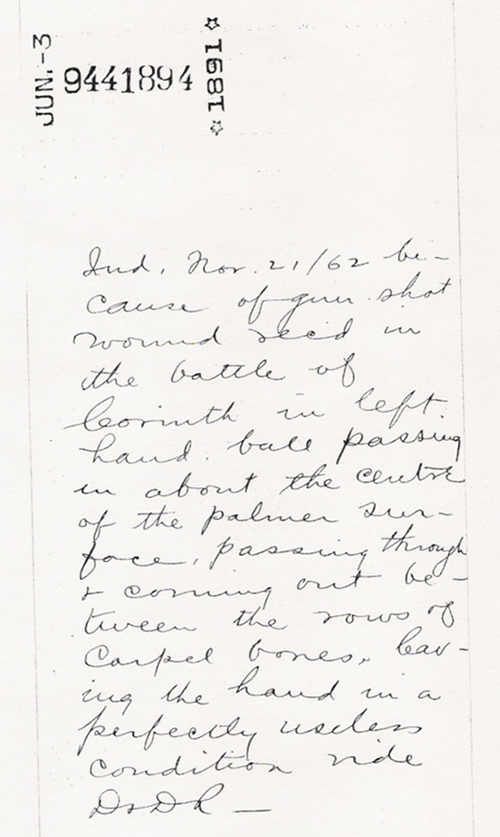 JUN.-3
9441894
☆1891☆
Ind. Nov. 21/62 be-
cause of gun shot
wound rec'd in
the battle of
Corinth in left
hand. ball passing
in about the centre
of the palmer sur-
face, passing through
& coming out be-
tween the rows of
Carpel bones, leav-
ing the hand in a
perfectly useless
condition vide
DofDR —